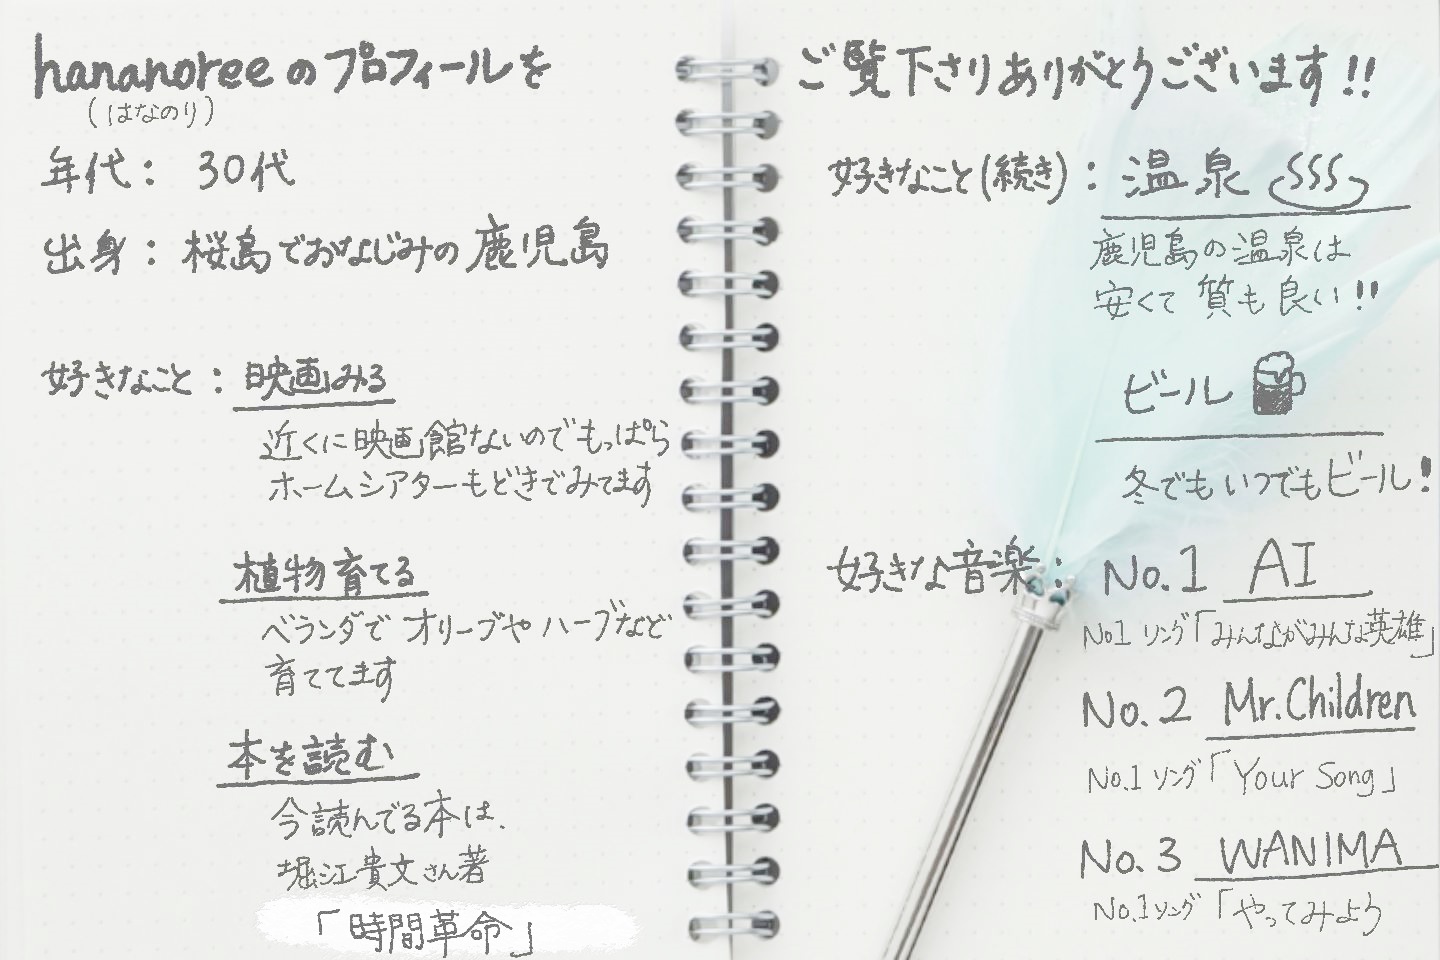 hananoreeのプロフィールを
（はなのり）
年代： 30代
出身：桜島でおなじみの鹿児島
好きなこと：映画みる
近くに映画館ないのでもっぱら
ホームシアターもどきでみてます
植物育てる
ベランダで オリーブや ハーブなど
育ててます
本を読む
今読んでる本は、
堀江貴文さん著
「時間革命」
ご覧下さりありがとうございます!!
好きなこと(続き)：温泉
鹿児島の温泉は
安くて 質も良い!!
ビール
冬でもいつでもビール!
好きな音楽： No.1 AI
No1 ソング「みんながみんな英雄」
No.2 Mr.Children
No.1 ソング「Your Song」
No.3 WANIMA
No.1ソング「やってみよう